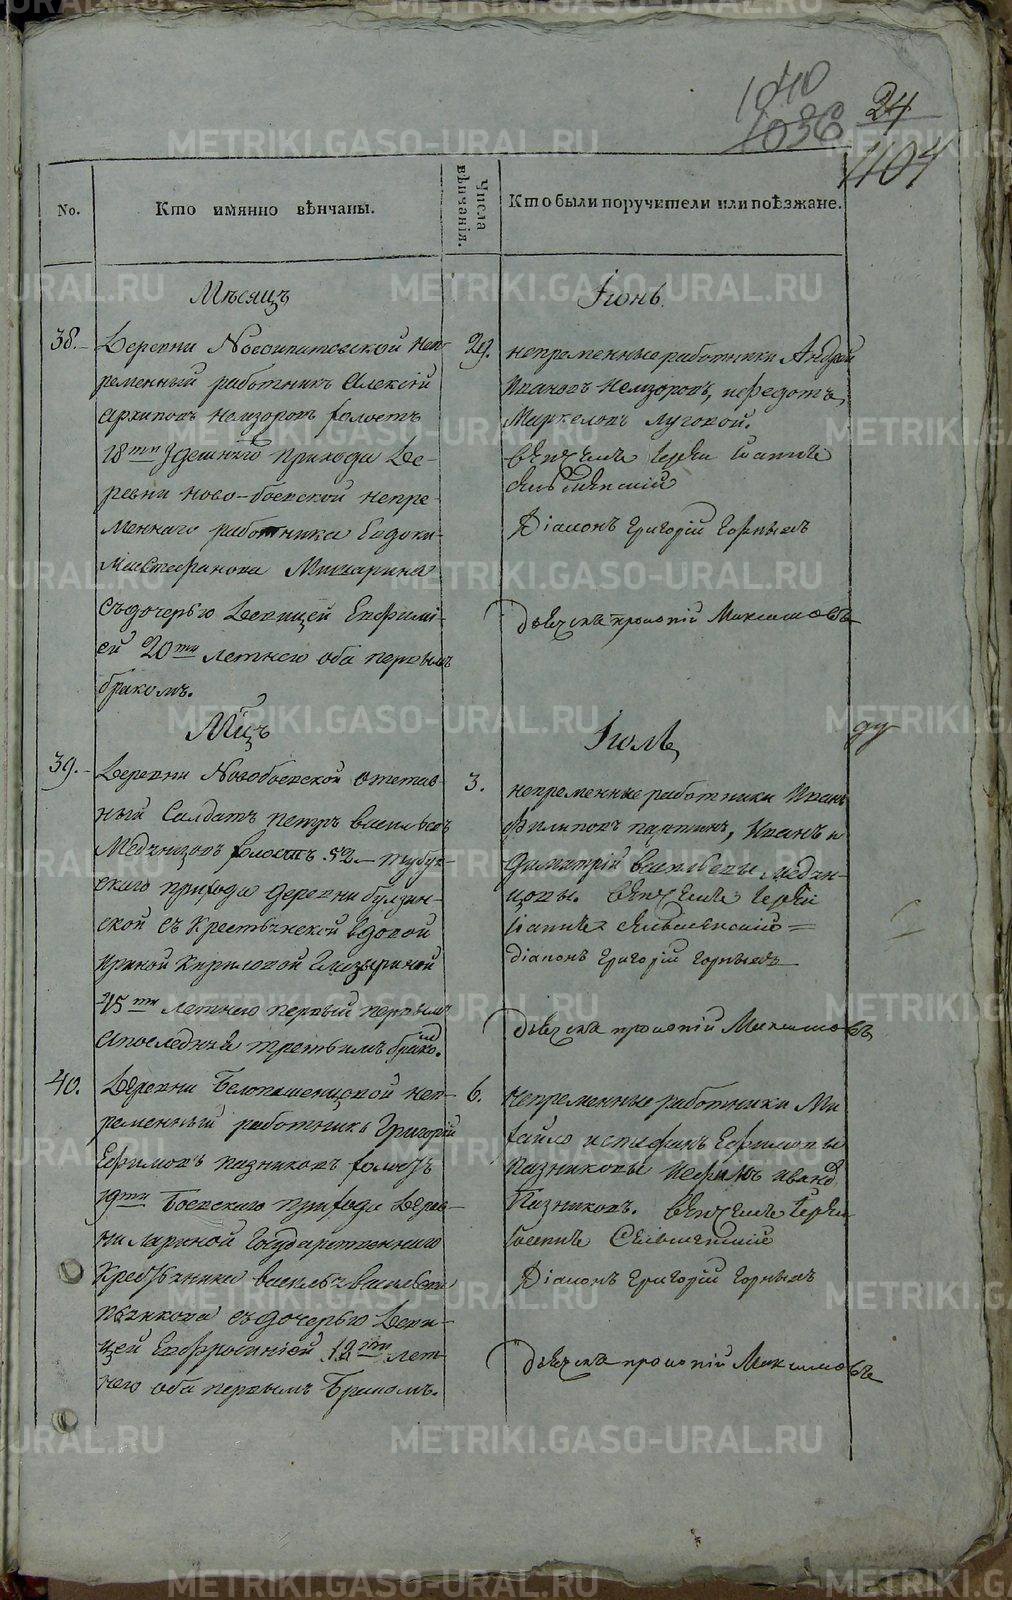 1040
1036
24
404
No.
Кто имянно вѣнчаны.
Числа вѣнчанія.
Кто были поручители или поѣзжане.
Мѣсяцъ
Іюнь.
38.
Деревни Новоипатовской неп-
ременный работникъ Алексій
Архиповъ Немзоровъ холостъ
18ти здешняго прихода де-
ревни Ново-боевской непре-
меннаго работника Евдоки-
ма Стефанова Мичарина
съ дочерью девицей Евфимі-
ей 20ти летнего оба первымъ
бракомъ.
29.
непременные работники Андрей
Ивановъ Немзоровъ, и федотъ
Маркеловъ Луговой.
венчалъ Іерей Іоаннъ
Діаконъ Григорій Горныхъ
Дьячекъ прокопій Максимовъ
Мцъ
Іюль
39.
Деревни Новобоевской отстав-
ный Салдатъ петръ васильевъ
Медынцовъ холостъ 52 - тубук-
скаго прихода деревни булзин-
ской съ Крестьянской вдовой
Ириной Кириловой
45ти летнего первый первымъ
а последній третьимъ бракомъ.
3.
непременные работники Иванъ
Филиповъ паутинъ, Иванъ и
Димитрій васильевы медын-
цовы. венчалъ Іерей
Іоаннъ
діаконъ Григорій Горныхъ
дьячекъ прокопій Максимовъ
40.
Деревни Белопашенцовой неп-
ременный работникъ Григорій
Ефимовъ казниковъ холостъ
19ти Боевскаго прихода дерев-
ни лариной Государственнаго
Крестьянина василья васильева
съ дочерью деви-
цей Евфросиніей 19ти лет-
него оба первымъ бракомъ.
6.
Непременные работники Ми
хайло и стафанъ Ефимовы
Казниковы и ефимъ иванов
Казниковъ. венчалъ Іерей
Іоаннъ
Діаконъ Григорій Горныхъ
Дьячекъ прокопій Максимовъ
METRIKI.GASO-URAL.RU